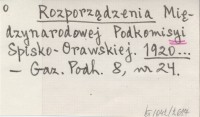 o Rozporządzenia Mię-
dzynarodowej Podkomisyi
Spisko-Orawskiej. 1920...
- Gaz. Podh. 8, nr 24.